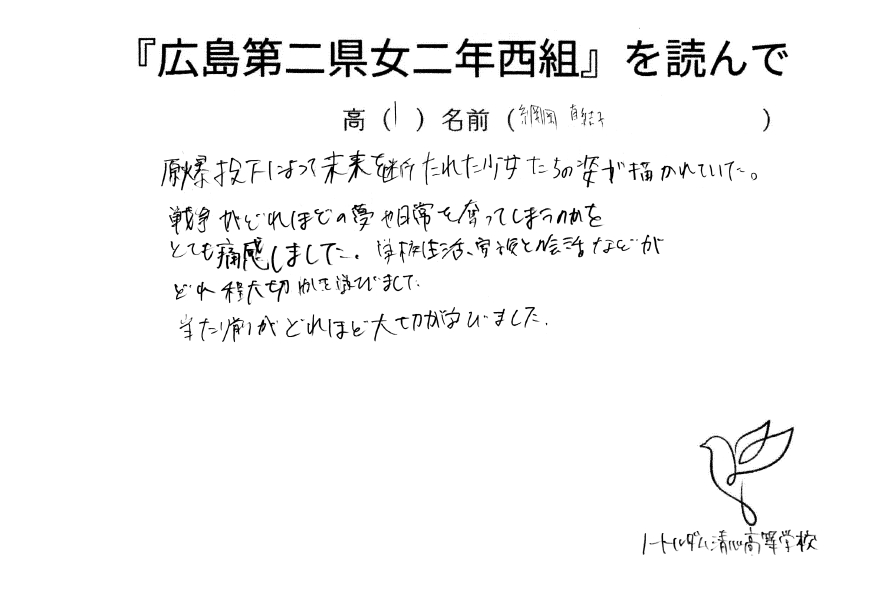 『広島第二県女二年西組』を読んで
高（1）名前（綱岡 真結子）
原爆投下によって未来を断たれた少女たちの姿が描かれていた。
戦争がどれほどの夢や日常を奪ってしまうのかを
とても痛感しました。学校生活、家族と会話などが
どれ程大切かを学びました。
当たり前がどれほど大切か学びました.
ノートルダム清心高等学校